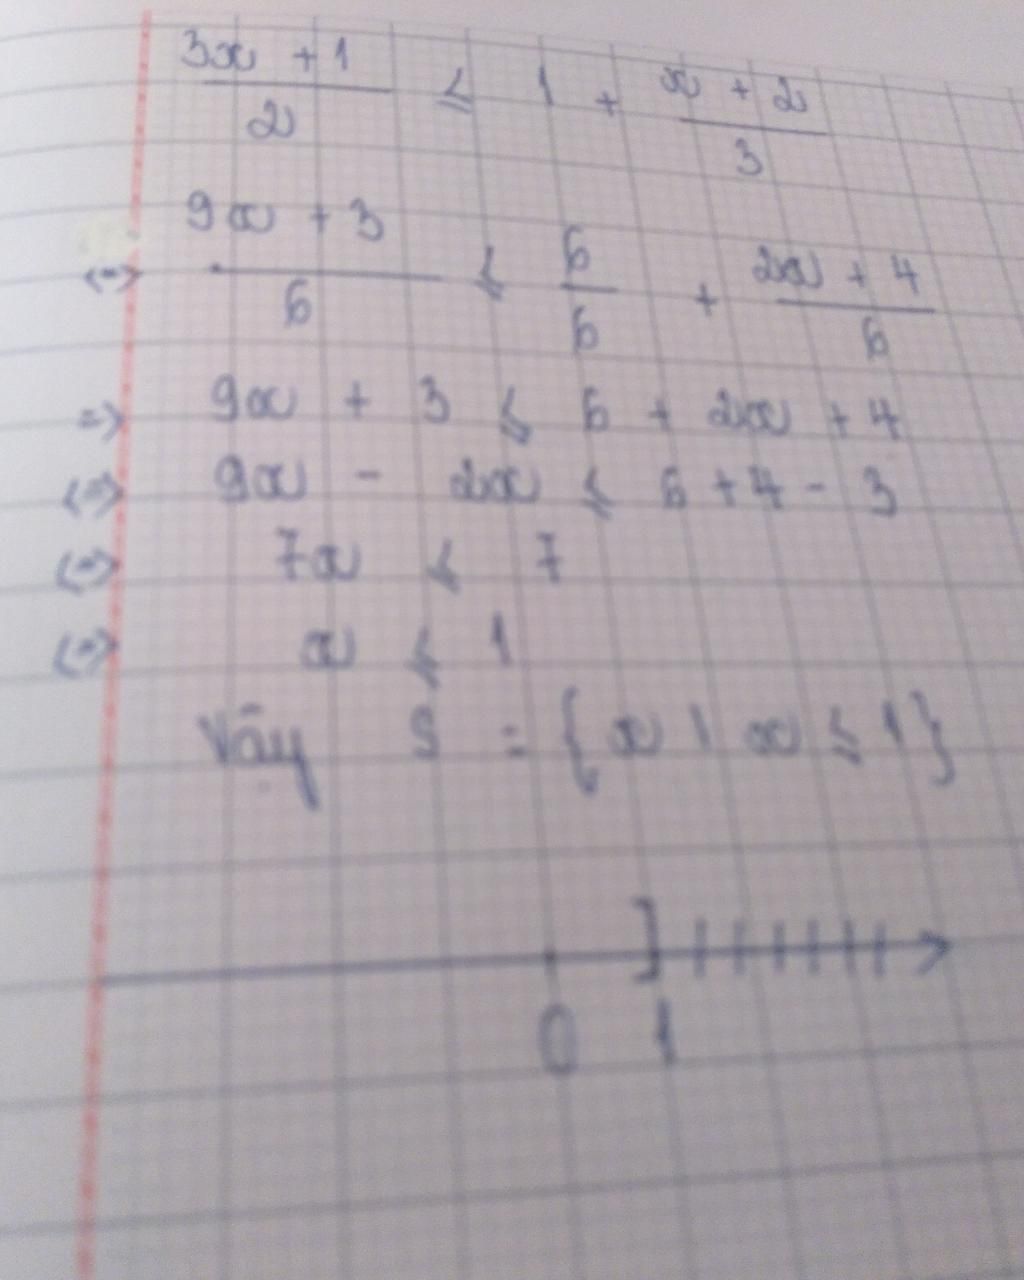 3x + 1 / 2 ≤ 1 + x + 2 / 3
<=> 9x + 3 / 6 ≤ 6 / 6 + 2x + 4 / 6
=> 9x + 3 ≤ 6 + 2x + 4
<=> 9x - 2x ≤ 6 + 4 - 3
<=> 7x ≤ 7
<=> x ≤ 1
Vậy S = { x | x ≤ 1 }
0 1